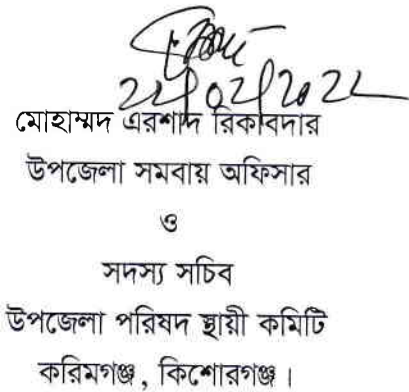 মোহাম্মদ এরশাদ রিকাবদার
উপজেলা সমবায় অফিসার
ও
সদস্য সচিব
উপজেলা পরিষদ স্থায়ী কমিটি
করিমগঞ্জ, কিশোরগঞ্জ।